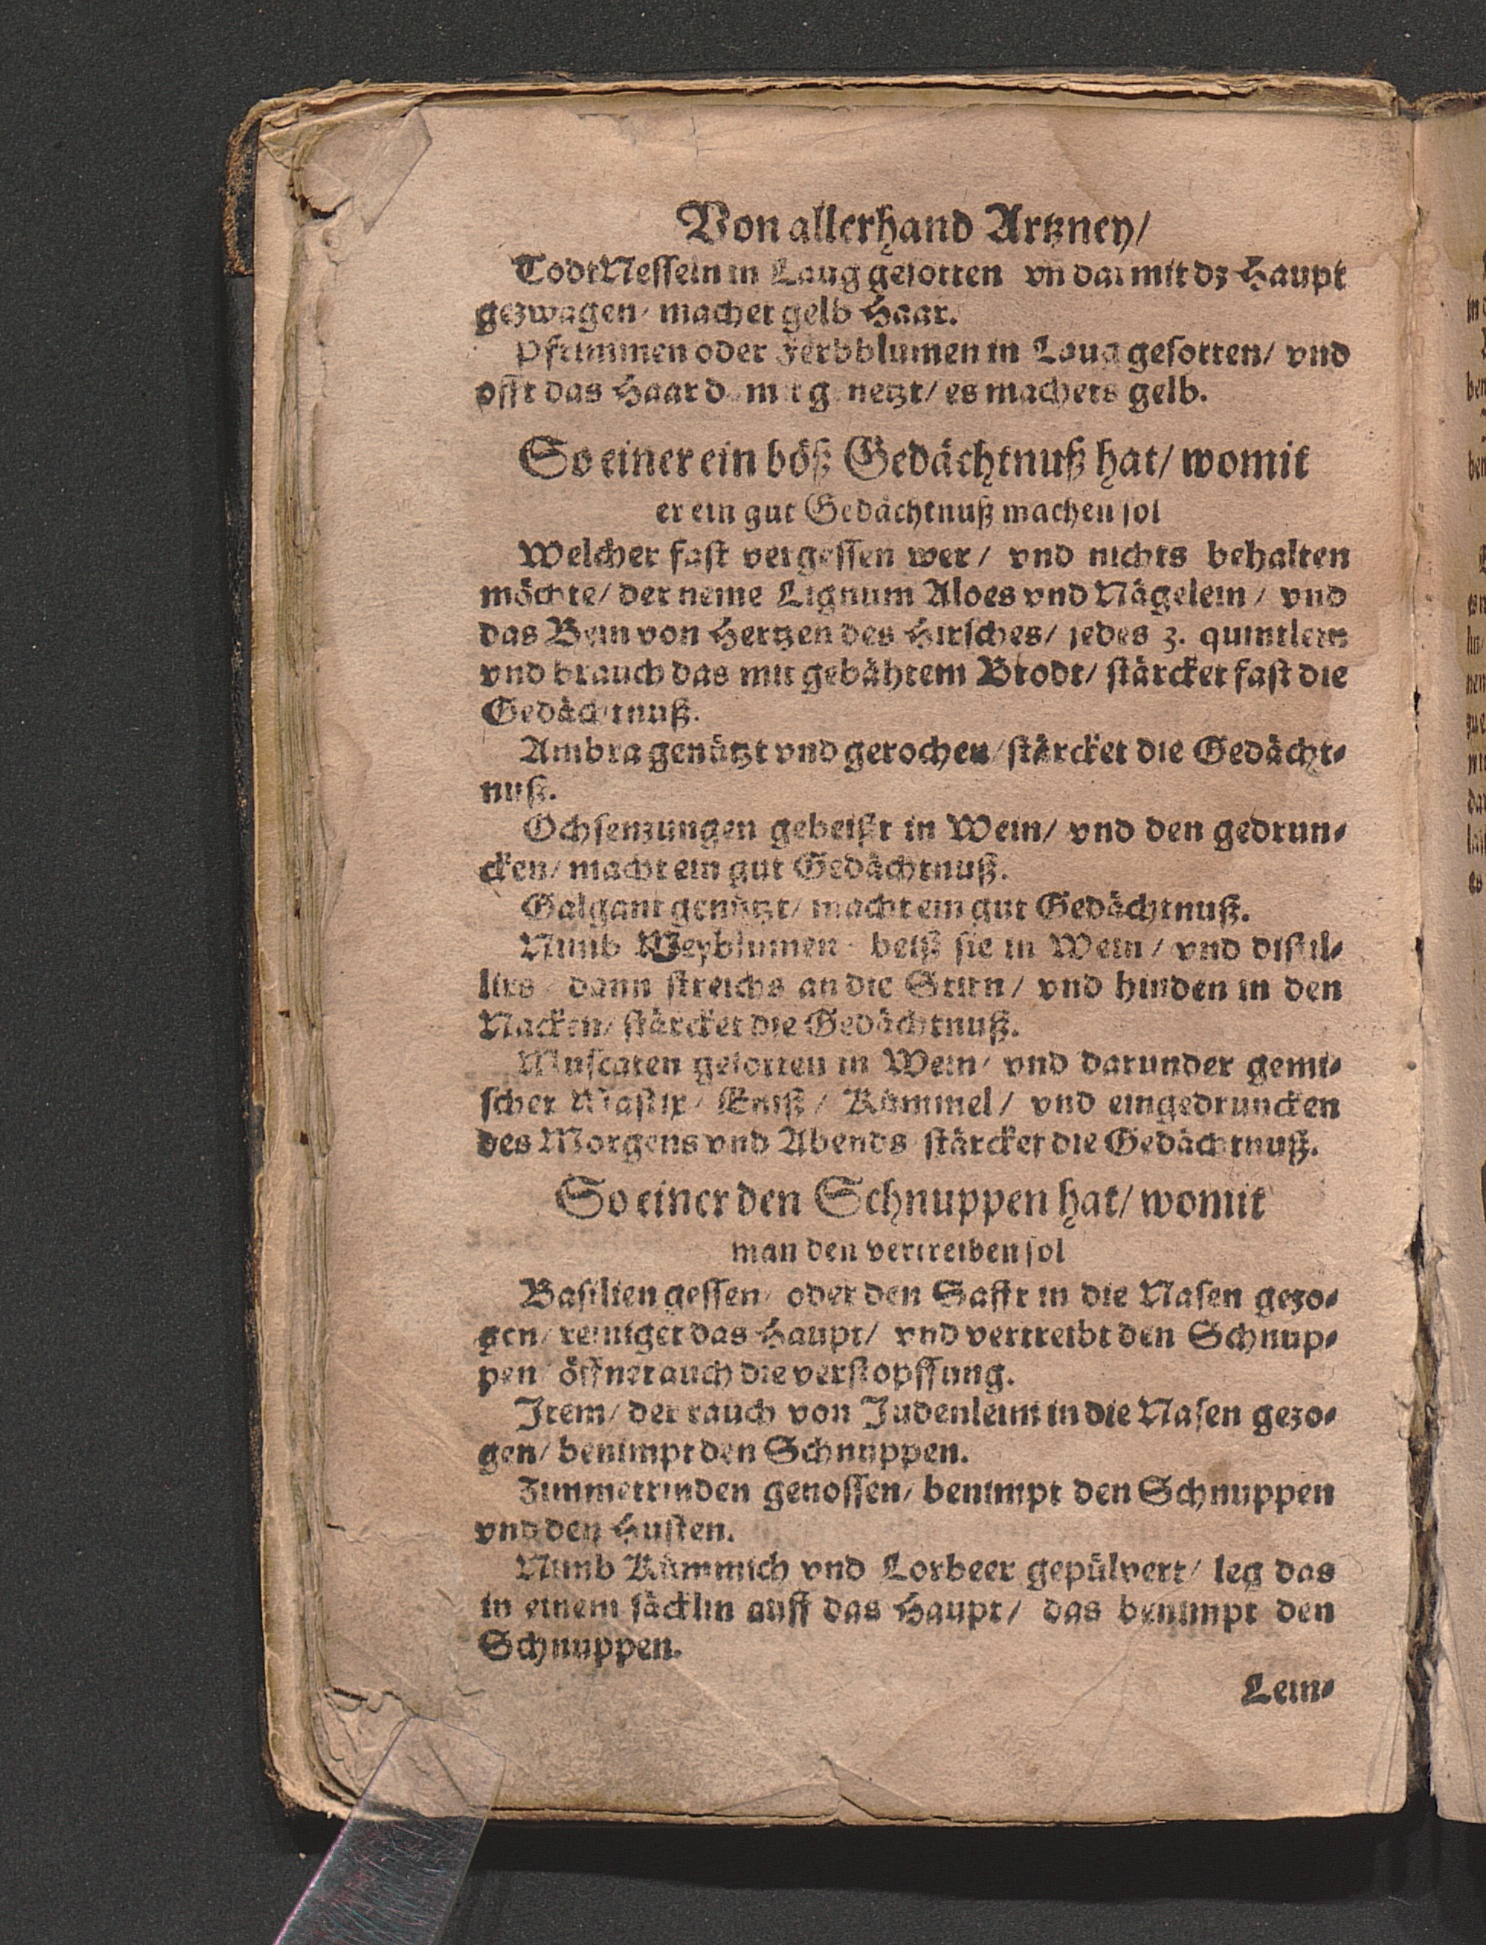 Von allerhand Artzney/
TodtNesseln in Laug gesotten vn darmit dz Haupt
gezwagen/ machet gelb Haar.
Pfrimmen oder Ferbblumen in Laug gesotten/ vnd
offt das Haar damit genetzt/ es machets gelb.
So einer ein böß Gedächtnuß hat/ womit
er ein gut Gedächtnuß machen sol
Welcher fast vergessen wer/ vnd nichts behalten
möchte/ der neme Lignum Aloes vnd Nägelein/ vnd
das Bein von Hertzen des Hirsches/ jedes 3. quintlein
vnd brauch das mit gebähtem Brodt/ stärcket fast die
Gedächtnuß.
Ambra genützt vnd gerochen/ stärcket die Gedächt-
nuß.
Ochsenzungen gebeißt in Wein/ vnd den gedrun-
cken/ macht ein gut Gedächtnuß.
Galgant genützt/ macht ein gut Gedächtnuß.
Nimb Meyblumen beiß sie in Wein/ vnd distil-
lirs/ dann streichs an die Stirn/ vnd hinden in den
Nacken/ stärcket die Gedächtnuß.
Muscaten gesotten in Wein/ vnd darunder gemi-
schet Mastix/ Eniß/ Kümmel/ vnd eingedruncken
des Morgens vnd Abends stärcket die Gedächtnuß.
So einer den Schnuppen hat/ womit
man den vertreiben sol
Basilien gessen/ oder den Safft in die Nasen gezo-
gen/ reiniget das Haupt/ vnd vertreibt den Schnup-
pen/ öffnet auch die verstopffung.
Item/ der rauch von Judenleim in die Nasen gezo-
gen/ benimpt den Schnuppen.
Zimmetrinden genossen/ benimpt den Schnuppen
vnd den Husten.
Nimb Kümmich vnd Lorbeer gepülvert/ leg das
in einem säcklin auff das Haupt/ das benimpt den
Schnuppen.
Lein-